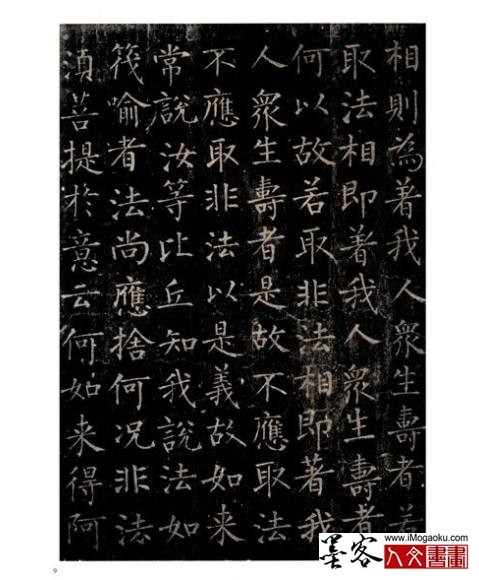 相則為著我人衆生壽者若
取法相即著我人衆生壽者
何以故若取非法相即著我
人衆生壽者是故不應取法
不應取非法以是義故如来
常說汝等比丘知我說法如
筏喻者法尚應捨何况非法
湏菩提於意云何如来得阿
9
墨客 www.iMogaoku.com
人文書畫